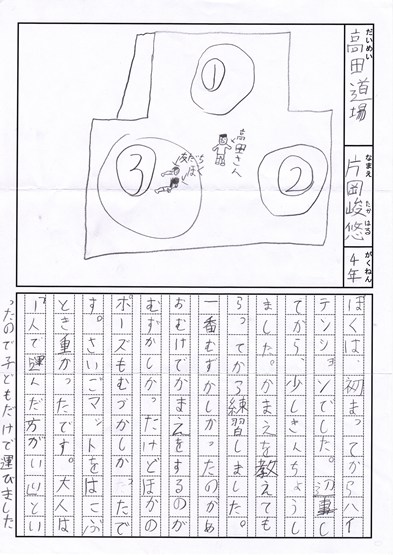 だいめい
高田道場
なまえ
片岡峻悠
たか はる
がくねん
4年
①
②
③
高田さん
友だち
ぼく
ぼくは、初まってからハイ
テンションでした。返事し
てから、少しきんちょうし
ました。かまえを教えても
らってから練習しました。
一番むずかしかったのがあ
おむけでかまえをするのが
むずかしかったけどほかの
ポーズもむづかしかったで
す。さいごマットをはこぶ
とき重かったです。大人は
「1人で運んだ方がいい」とい
ったので子どもだけで運びました